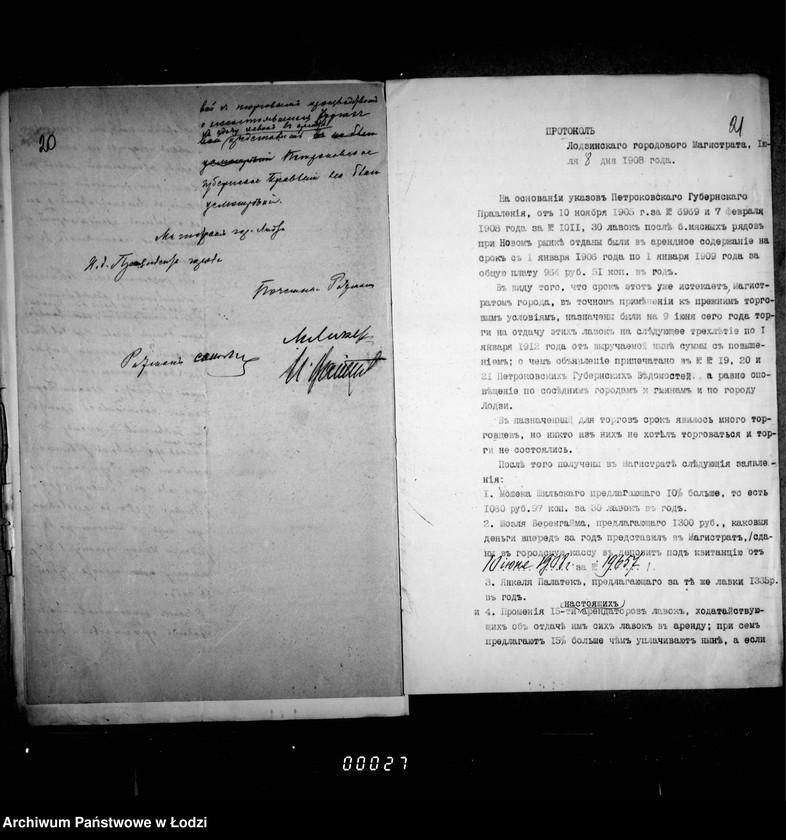 20
вой и торговыми
о несостоявшихся торгах
на отдачу лавокъ въ аренду
представить
Петроковское
Губернское Правленіе
Магистратъ гор. Лодзи
И. д. Президента города
Ратманъ
21
ПРОТОКОЛЪ
Лодзинскаго городового Магистрата, Ію-
ля 8 дня 1908 года.
На основаніи указовъ Петроковскаго Губернскаго
Правленія, отъ 10 ноября 1905 г.за № 6969 и 7 февраля
1908 года за № 1011, 30 лавокъ послѣ б.мясныхъ рядовъ
при Новомъ рынкѣ отданы были въ арендное содержаніе на
срокъ съ 1 января 1906 года по 1 января 1909 года за
общую плату 964 руб. 51 коп. въ годъ.
Въ виду того, что срокъ этотъ уже истекаетъ, Магист-
ратомъ города, въ точномъ примѣненіи къ прежнимъ торго-
вымъ условіямъ, назначены были на 9 іюня сего года тор-
ги на отдачу этихъ лавокъ на слѣдующее трехлѣтіе по 1
января 1912 года отъ выручаемой нынѣ суммы съ повыше-
ніемъ; о чемъ объявленіе припечатано въ №№ 19, 20 и
21 Петроковскихъ Губернскихъ Вѣдомостей, а равно опо-
вѣщеніе по сосѣднимъ городамъ и гминамъ и по городу
Лодзи.
Въ назначенный для торговъ срокъ явилось много тор-
говцевъ, но никто изъ нихъ не хотѣлъ торговаться и тор-
ги не состоялись.
Послѣ того получены въ Магистратѣ слѣдующія заявле-
нія:
1. Мошека Шильскаго предлагающаго 10% больше, то есть
1060 руб.97 коп. за 30 лавокъ въ годъ.
2. Шоэля Беренгайма, предлагающаго 1300 руб., каковыя
деньги впередъ за годъ представилъ въ Магистратъ,/сда-
ны въ городскую кассу въ депозитъ подъ квитанцію отъ
10 іюня 1908 г. за № 19657.
3. Янкеля Палатекъ, предлагающаго за тѣ же лавки 1335р.
въ годъ.
(настоящихъ)
и 4. Прошенія 15-ти арендаторовъ лавокъ, ходатайствую-
щихъ объ отдачѣ имъ сихъ лавокъ въ аренду; при семъ
предлагаютъ 15% больше чѣмъ уплачиваютъ нынѣ, а если
00027
Archiwum Państwowe w Łodzi